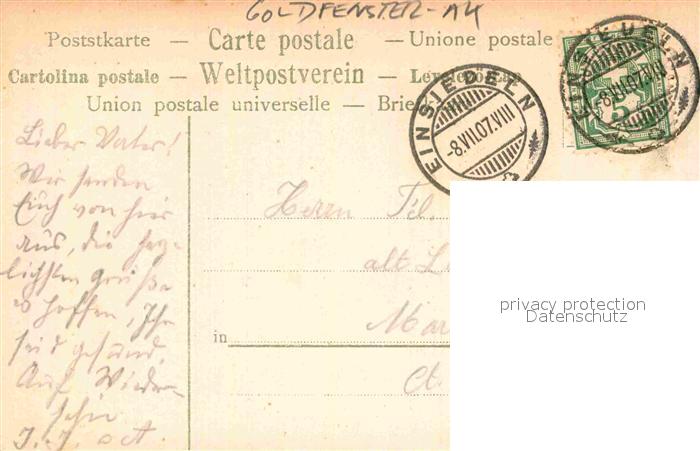 GOLDFENSTER-AK
Poststkarte — Carte postale — Unione postale
Cartolina postale — Weltpostverein —
Union postale universelle —
EINSIEDELN
-8.VII.07.VIII
EINSIEDELN
-8.VII.07
5
Lieber Vater!
Wir senden
Euch von hier
aus, die herz-
lichsten Grüße
hoffen, Ihr
seid gesund.
Auf Wieder-
sehn
Herrn
alt
in
Ct.
privacy protection
Datenschutz